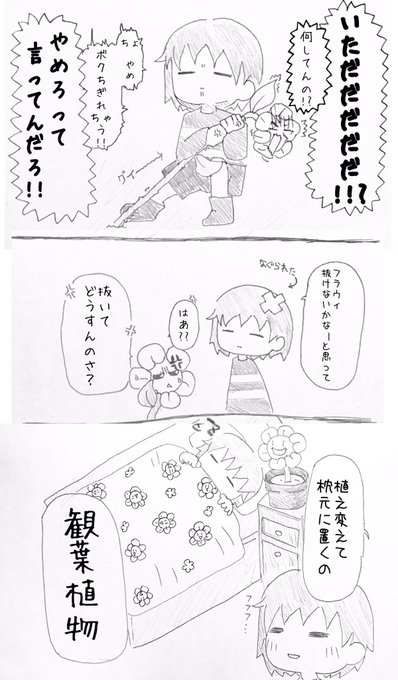 いただだだだだ!!?
何してんの!?
ちょ やめ
ボクちぎれちゃ
ちう!!
やめろって
言ってんだろ!!
グイー
なぐられた
フラウィ
抜けないかなーと思って
はあ??
抜いて
どうすんのさ?
植え変えて
枕元に置くの
フフフ…
観葉植物